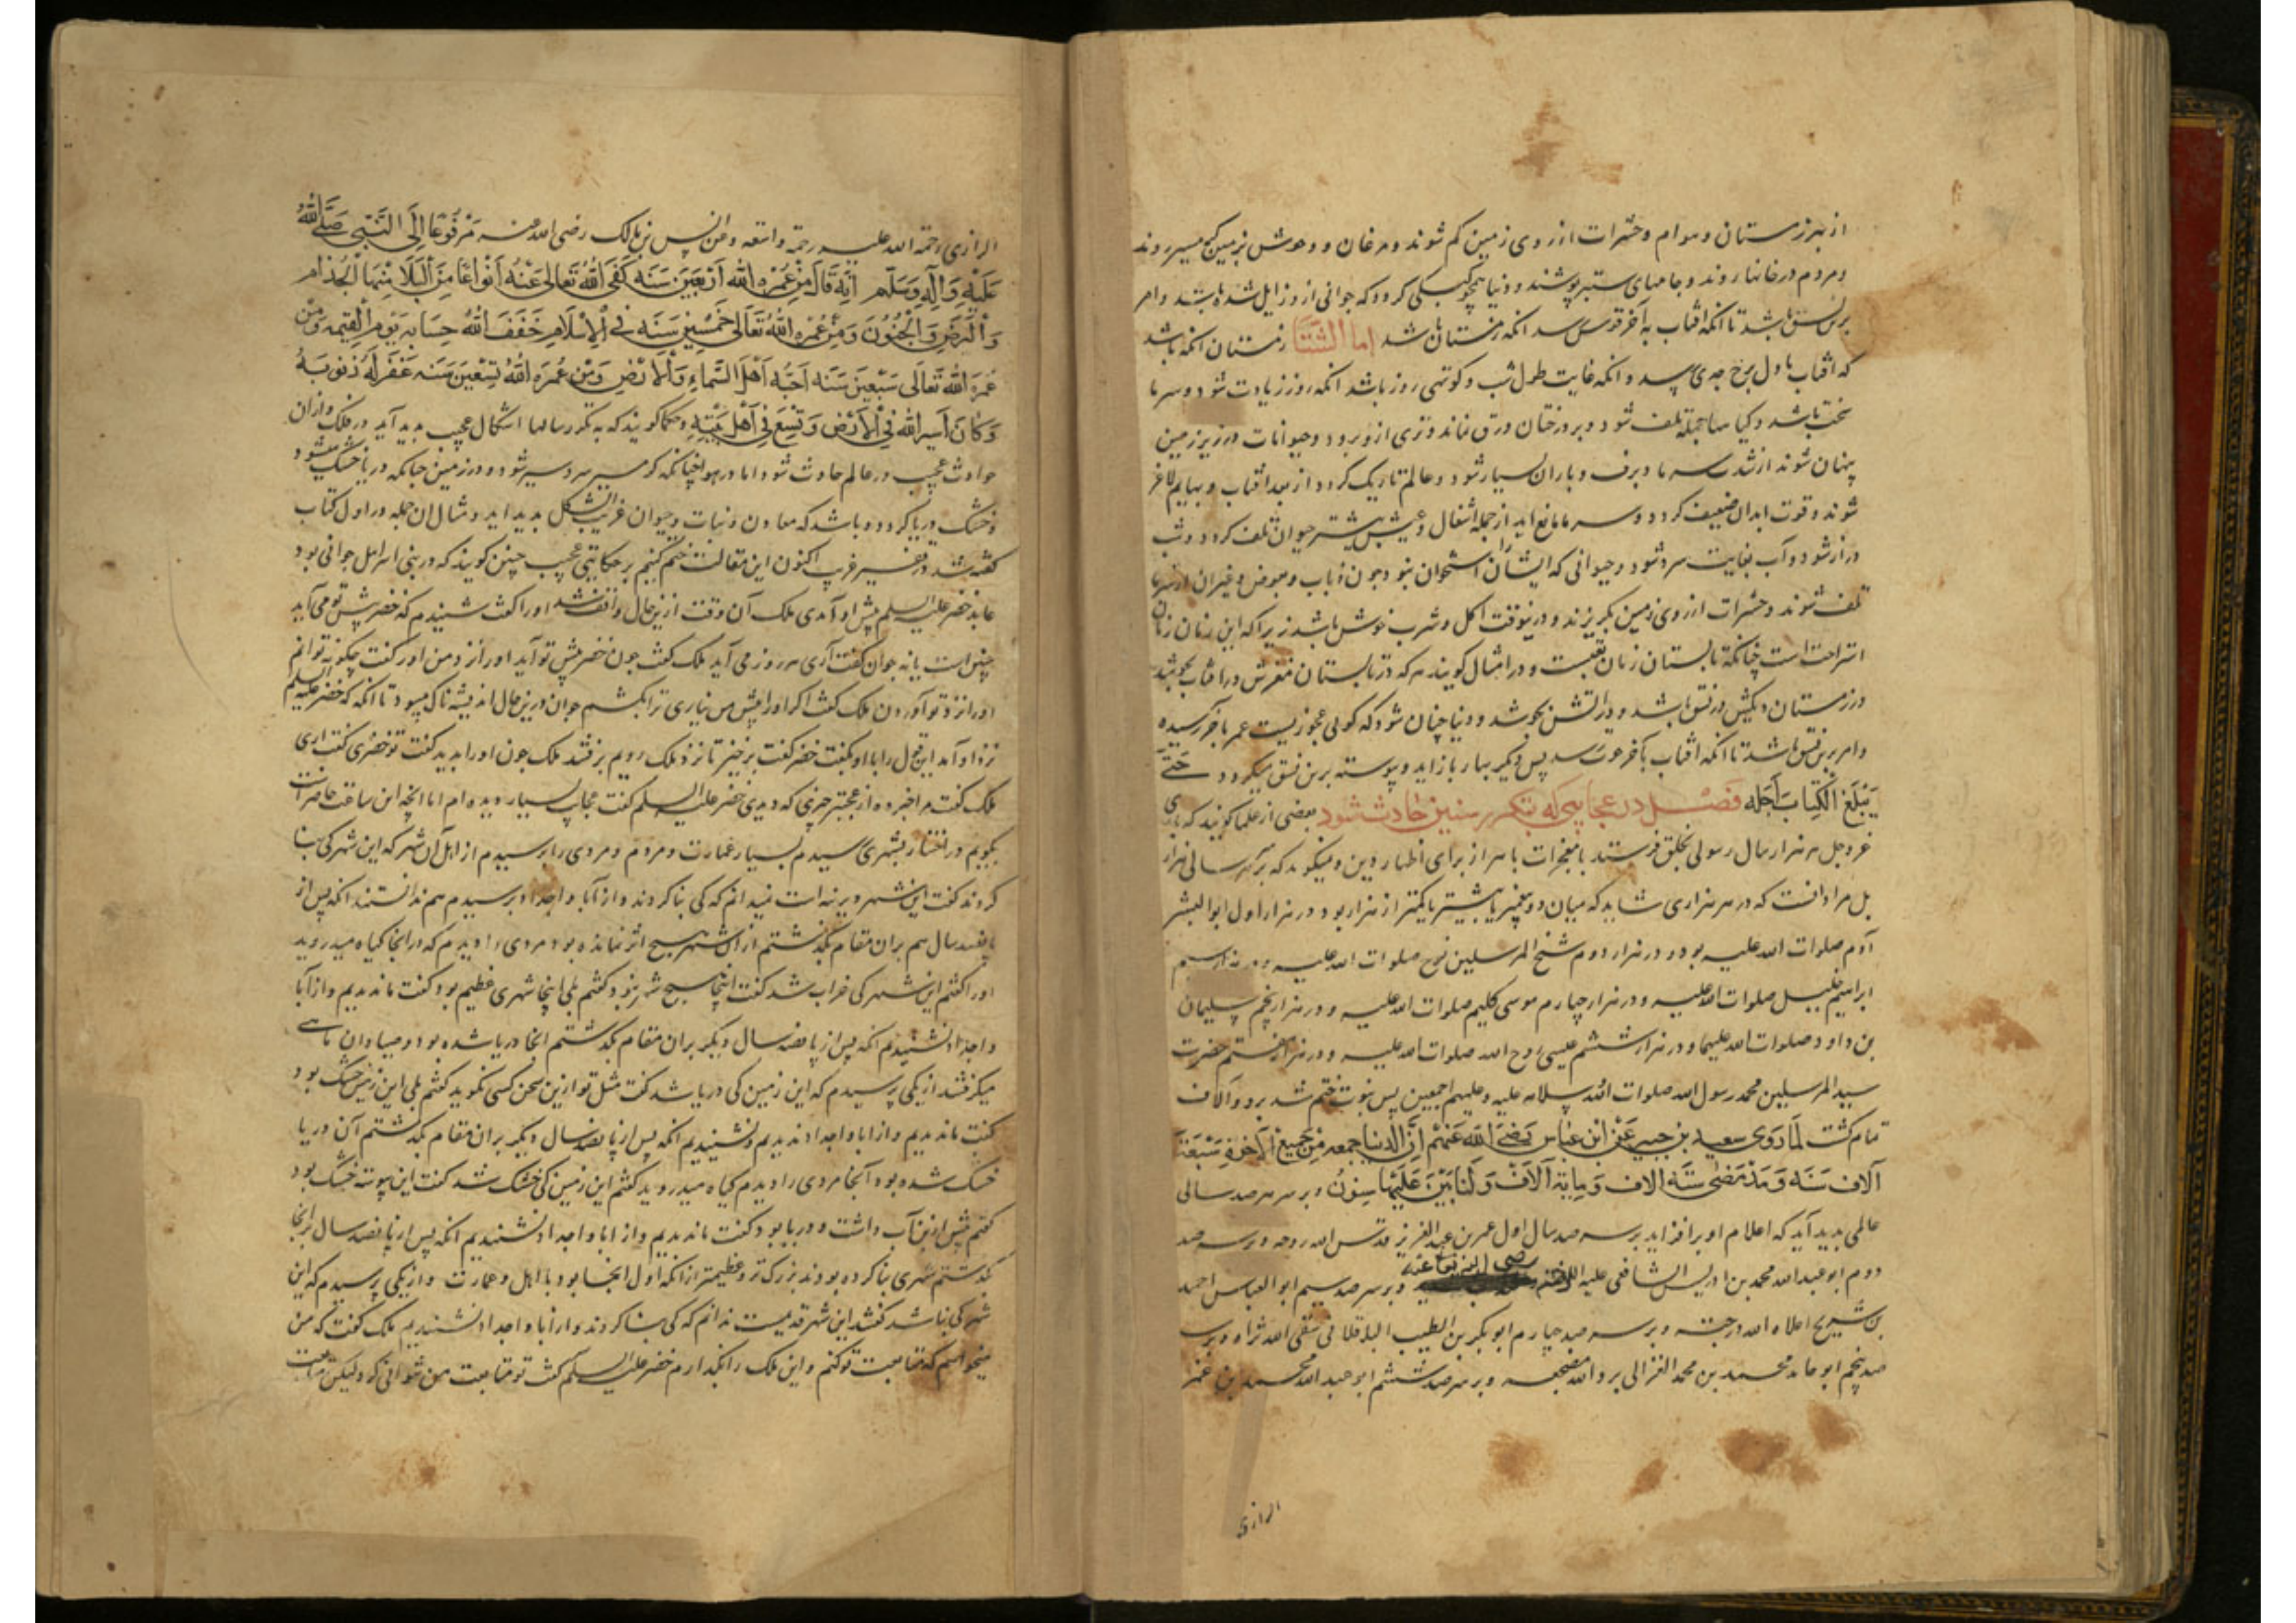 از بهر زمستان و هوام و حشرات از روی زمین کم شوند و مرغان و وحوش بزمین کم سیر روند
و مردم در خانها روند و جامهای ستبر پوشند و دنیا همچو کسی کردد که جوانی از و زایل شده باشد و امر
برین نسق باشد تا انکه افتاب به آخر قوس رسد انکه زمستان باشد اما الشتا زمستان انکه باشد
که افتاب باول برج جدی رسد و انکه غایت طول شب و کوتهی روز باشد انکه روز زیادت شود و سرما
سخت باشد و کیاهها جمله تلف شود و بر درختان ورق نماند و تری از و برود و حیوانات در زیر زمین
پنهان شوند از شدت سرما و برف و باران بسیار شود و عالم تاریک کردد از بعد افتاب و بهایم لاغر
شوند و قوت ابدان ضعیف کردد و سرما مانع اید از جمله اشغال و عیش بیشتر حیوان تلف کردد و شب
دراز شود و آب بغایت سرد شود و حیوانی که ایشان را استخوان نبود چون ذباب و بعوض و غیران از سرما
تلف شوند و حشرات از روی زمین بکریزند و درینوقت اکل و شرب خوش باشد زیرا که این زمان زمان
استراحت است چنانکه تابستان زمان تعبست و در امثال کویند هر که در تابستان مغزش در افتاب نجوشد
در زمستان دیکش در آتش نجوشد و دنیا چنان شود که کویی عجوزیست عمر باخر رسیده
و امر برین نسق باشد تا انکه افتاب بآخر حوت رسد پس دیکر بهار باز اید و پیوسته برین نسق میکردد حَتّی
یَبلُغَ الکِتابَ اَجَلَه فصل در عجایبی که بتکرر سنین حادث شود بعضی از علما کویند که باری
عز و جل هر هزار سال رسولی بخلق فرستد با معجزات باهر از برای اظهار دین و میکوید که بر سر هر سالی هزار
بل مراد انست که در هر هزاری شاید که میان دو پیغمبر بیشتر یا کمتر از هزار بود و در هزار اول ابوالبشر
آدم صلوات الله علیه بود و در هزار دوم شیخ المرسلین نوح صلوات الله علیه و در هزار سیم
ابراهیم خلیل صلوات الله علیه و در هزار چهارم موسی کلیم صلوات الله علیه و در هزار پنجم سلیمان
بن داود صلوات الله علیهما و در هزار ششم عیسی روح الله صلوات الله علیه و در هزار هفتم حضرت
سید المرسلین محمد رسول الله صلوات الله و سلامه علیه و علیهم اجمعین پس نبوت ختم شد برو و آلاف
تمام کشت لما روی سعید بن جبیر عن ابن عباس رضی الله عنهم ان الدنیا جمعه من جمیع الآخرة سبعة
آلاف سنه و قد مضی سته الاف و مایة آلاف و لناتین علیها سنون و بر سر هر صد سالی
عالمی بدید آید که اعلام او بر افرازد بر سر صد سال اول عمر بن عبد العزیز قدس الله روحه و بر سر صد
دوم ابو عبد الله محمد بن ادریس الشافعی رضی الله تعالی عنه و بر سر صد سیم ابو العباس احمد
بن شریح اعلاه الله درجته و بر سر صد چهارم ابو بکر بن الطیب الباقلانی سقی الله ثراه و بر سر
صد پنجم ابو حامد محمد بن محمد الغزالی برد الله مضجعه و بر سر صد ششم ابو عبد الله محمد بن عمر
الرازی
الرازی رحمة الله علیه رحمة واسعه و عن انس بن مالک رضی الله عنه مَرفُوعًا اِلَی النَّبِی صَلَّی اللهُ
عَلَیهِ وَآلِهِ وَسَلَّم اَنَّه قَالَ مَن عُمره الله اَربَعینَ سَنَه کَفَی اللهُ تَعالی عَنهُ اَنواعًا مِنَ البَلَا مِنهَا الجُذام
وَالبَرَص وَالجُنُونَ وَمَن عُمره اللهُ تَعَالَی خَمسِینَ سَنَه فی الاِسلَام خَفَفَ اللهُ حِسَابه یَومَ القِیمه وَمَن
عُمرَه اللهُ تَعَالَی سَبعِینَ سَنَه اَحَبَّه اَهلُ السَّماءِ وَالاَرض وَمَن عُمره اللهُ تِسعِینَ سَنَه غَفَرَ لَه ذُنُوبَهُ
وَکَانَ اَسیرَ الله فِی الاَرض وَتشفعَ فِی اَهلِ بَیتِهِ و حکما کویند که به تکرر سالها اشکال عجیب بدید آید در فلک و ازان
حوادث عجیب در عالم حادث شود اما در هوا چنانکه کرمسیر سردسیر شود و در زمین چنانکه دریا خشک شود
و خشک دریا کردد و باشد که معادن و نبات و حیوان غریب الشکل بدید اید و مثال ان جمله در اول کتاب
کفته شد اکنون این مقالت ختم کنیم بر حکایتی عجیب چنین کویند که در بنی اسرایل جوانی بود
عابد خضر علیه السلم پیش او آمدی ملک آن وقت ازین حال واقف شد اورا کفت شنیدم که خضر پیش تو می آید
چنین است یا نه جوان کفت آری هر روز می آید ملک کفت چون خضر پیش تو آید اورا نزد من اور کفت چکونه توانم
اورا نزد تو آوردن ملک کفت اکر اورا پیش من نیاری ترا بکشم جوان درین حال اندیشه ناک میبود تا انکه که خضر علیه السلم
نزد او آمد این قول را با او بکفت خضر کفت برخیز تا نزد ملک رویم برفتند ملک چون اورا بدید کفت تو خضری کفت اری
ملک کفت مرا خبر ده از عجبتر چیزی که دیدی خضر علیه السلم کفت عجایب بسیار دیده ام اما انچه این ساعت حاضرست
بکویم در اختیار بشهری رسیدم بسیار عمارت و مردم و مردی را پرسیدم از اهل آن شهر که این شهر کی بنا
کردند کفت این شهر دیرینه است نمیدانم که کی بنا کردند و از آبا و اجداد پرسیدم هم ندانستند انکه پس از
پانصد سال هم بران مقام بکذشتم از ان شهر هیچ اثر نمانده بود مردی را دیدم که در انجا کیاه میدروید
اورا کفتم این شهر کی خراب شد کفت اینجا هیچ شهر نبود کفتم بلی اینجا شهری عظیم بود کفت ما ندیدیم و از آبا
و اجداد نشنیدیم انکه پس از پانصد سال دیکر بران مقام بکذشتم انجا دریا شده بود و صیادان ماهی
میکرفتند از یکی پرسیدم که این زمین کی دریا شد کفت مثل تو ازین سخن کسی نکوید کفتم بلی این زمین خشک بود
کفت ما ندیدیم و از ابا و اجداد ندیدیم و نشنیدیم انکه پس از پانصد سال دیکر بران مقام بکذشتم آن دریا
خشک شده بود آنجا مردی را دیدم کیاه میدروید کفتم این زمین کی خشک شد کفت این پیوسته خشک بود
کفتم پیش ازین آب داشت و دریا بود کفت ما ندیدیم و از ابا و اجداد نشنیدیم انکه پس از پانصد سال بر انجا
بکذشتم شهری بنا کرده بودند بزرک تر و عظیمتر از انکه اول انجا بود با اهل و عمارت و از یکی پرسیدم که این
شهر کی بنا شد کفتند این شهر قدیمست ندانم که کی بنا کردند و از ابا و اجداد نشنیدیم ملک کفت که من
میخواهم که متابعت تو کنم و این ملک را بکذارم خضر علیه السلم کفت تو متابعت من نتوانی کرد ولیکن متابعت